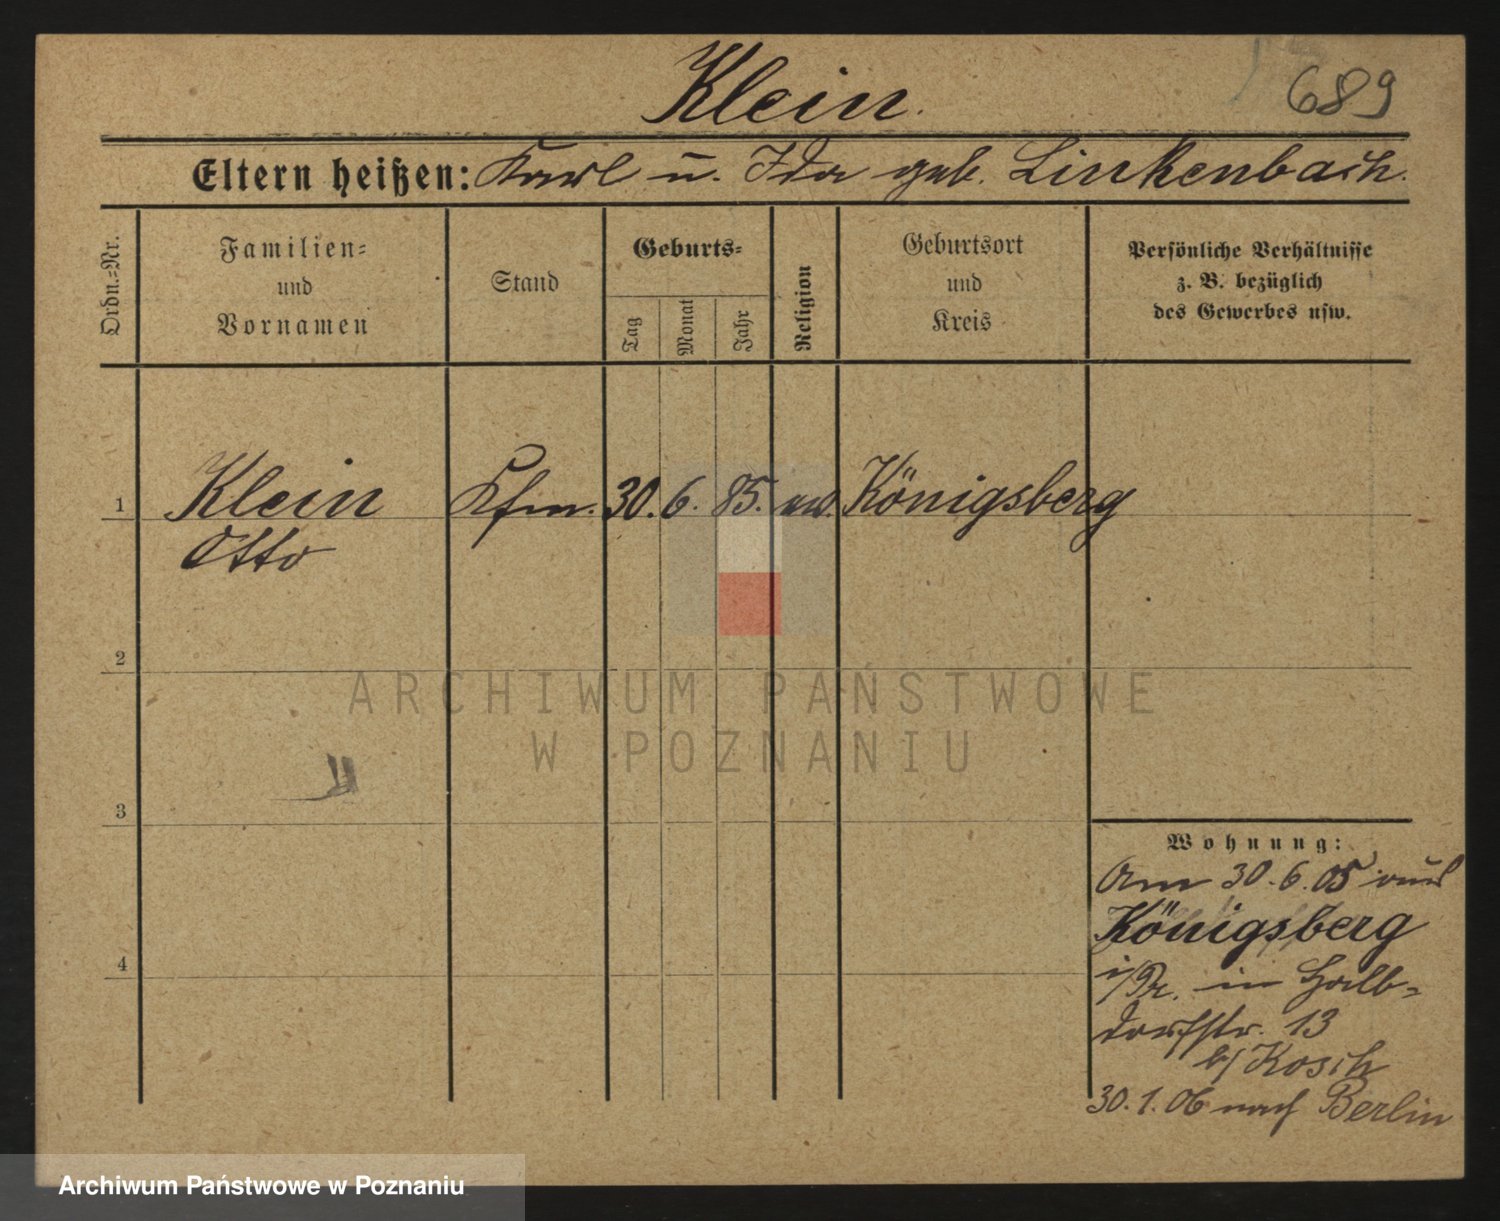 Klein.
689
Eltern heißen: Karl u. Ida geb. Linkenbach.
Ordn.-Nr.
Familien-
und
Vornamen
Stand
Geburts-
Tag
Monat
Jahr
Religion
Geburtsort
und
Kreis
Persönliche Verhältnisse
z. B. bezüglich
des Gewerbes usw.
1
Klein Kfm. 30. 6. 85. ev. Königsberg
Otto
2
ARCHIWUM PAŃSTWOWE
W POZNANIU
3
Wohnung:
Am 30.6.05 aus
Königsberg
4
i/Pr. in Halb-
dorfstr. 13
b/ Kosch
30.1.06 nach Berlin
Archiwum Państwowe w Poznaniu